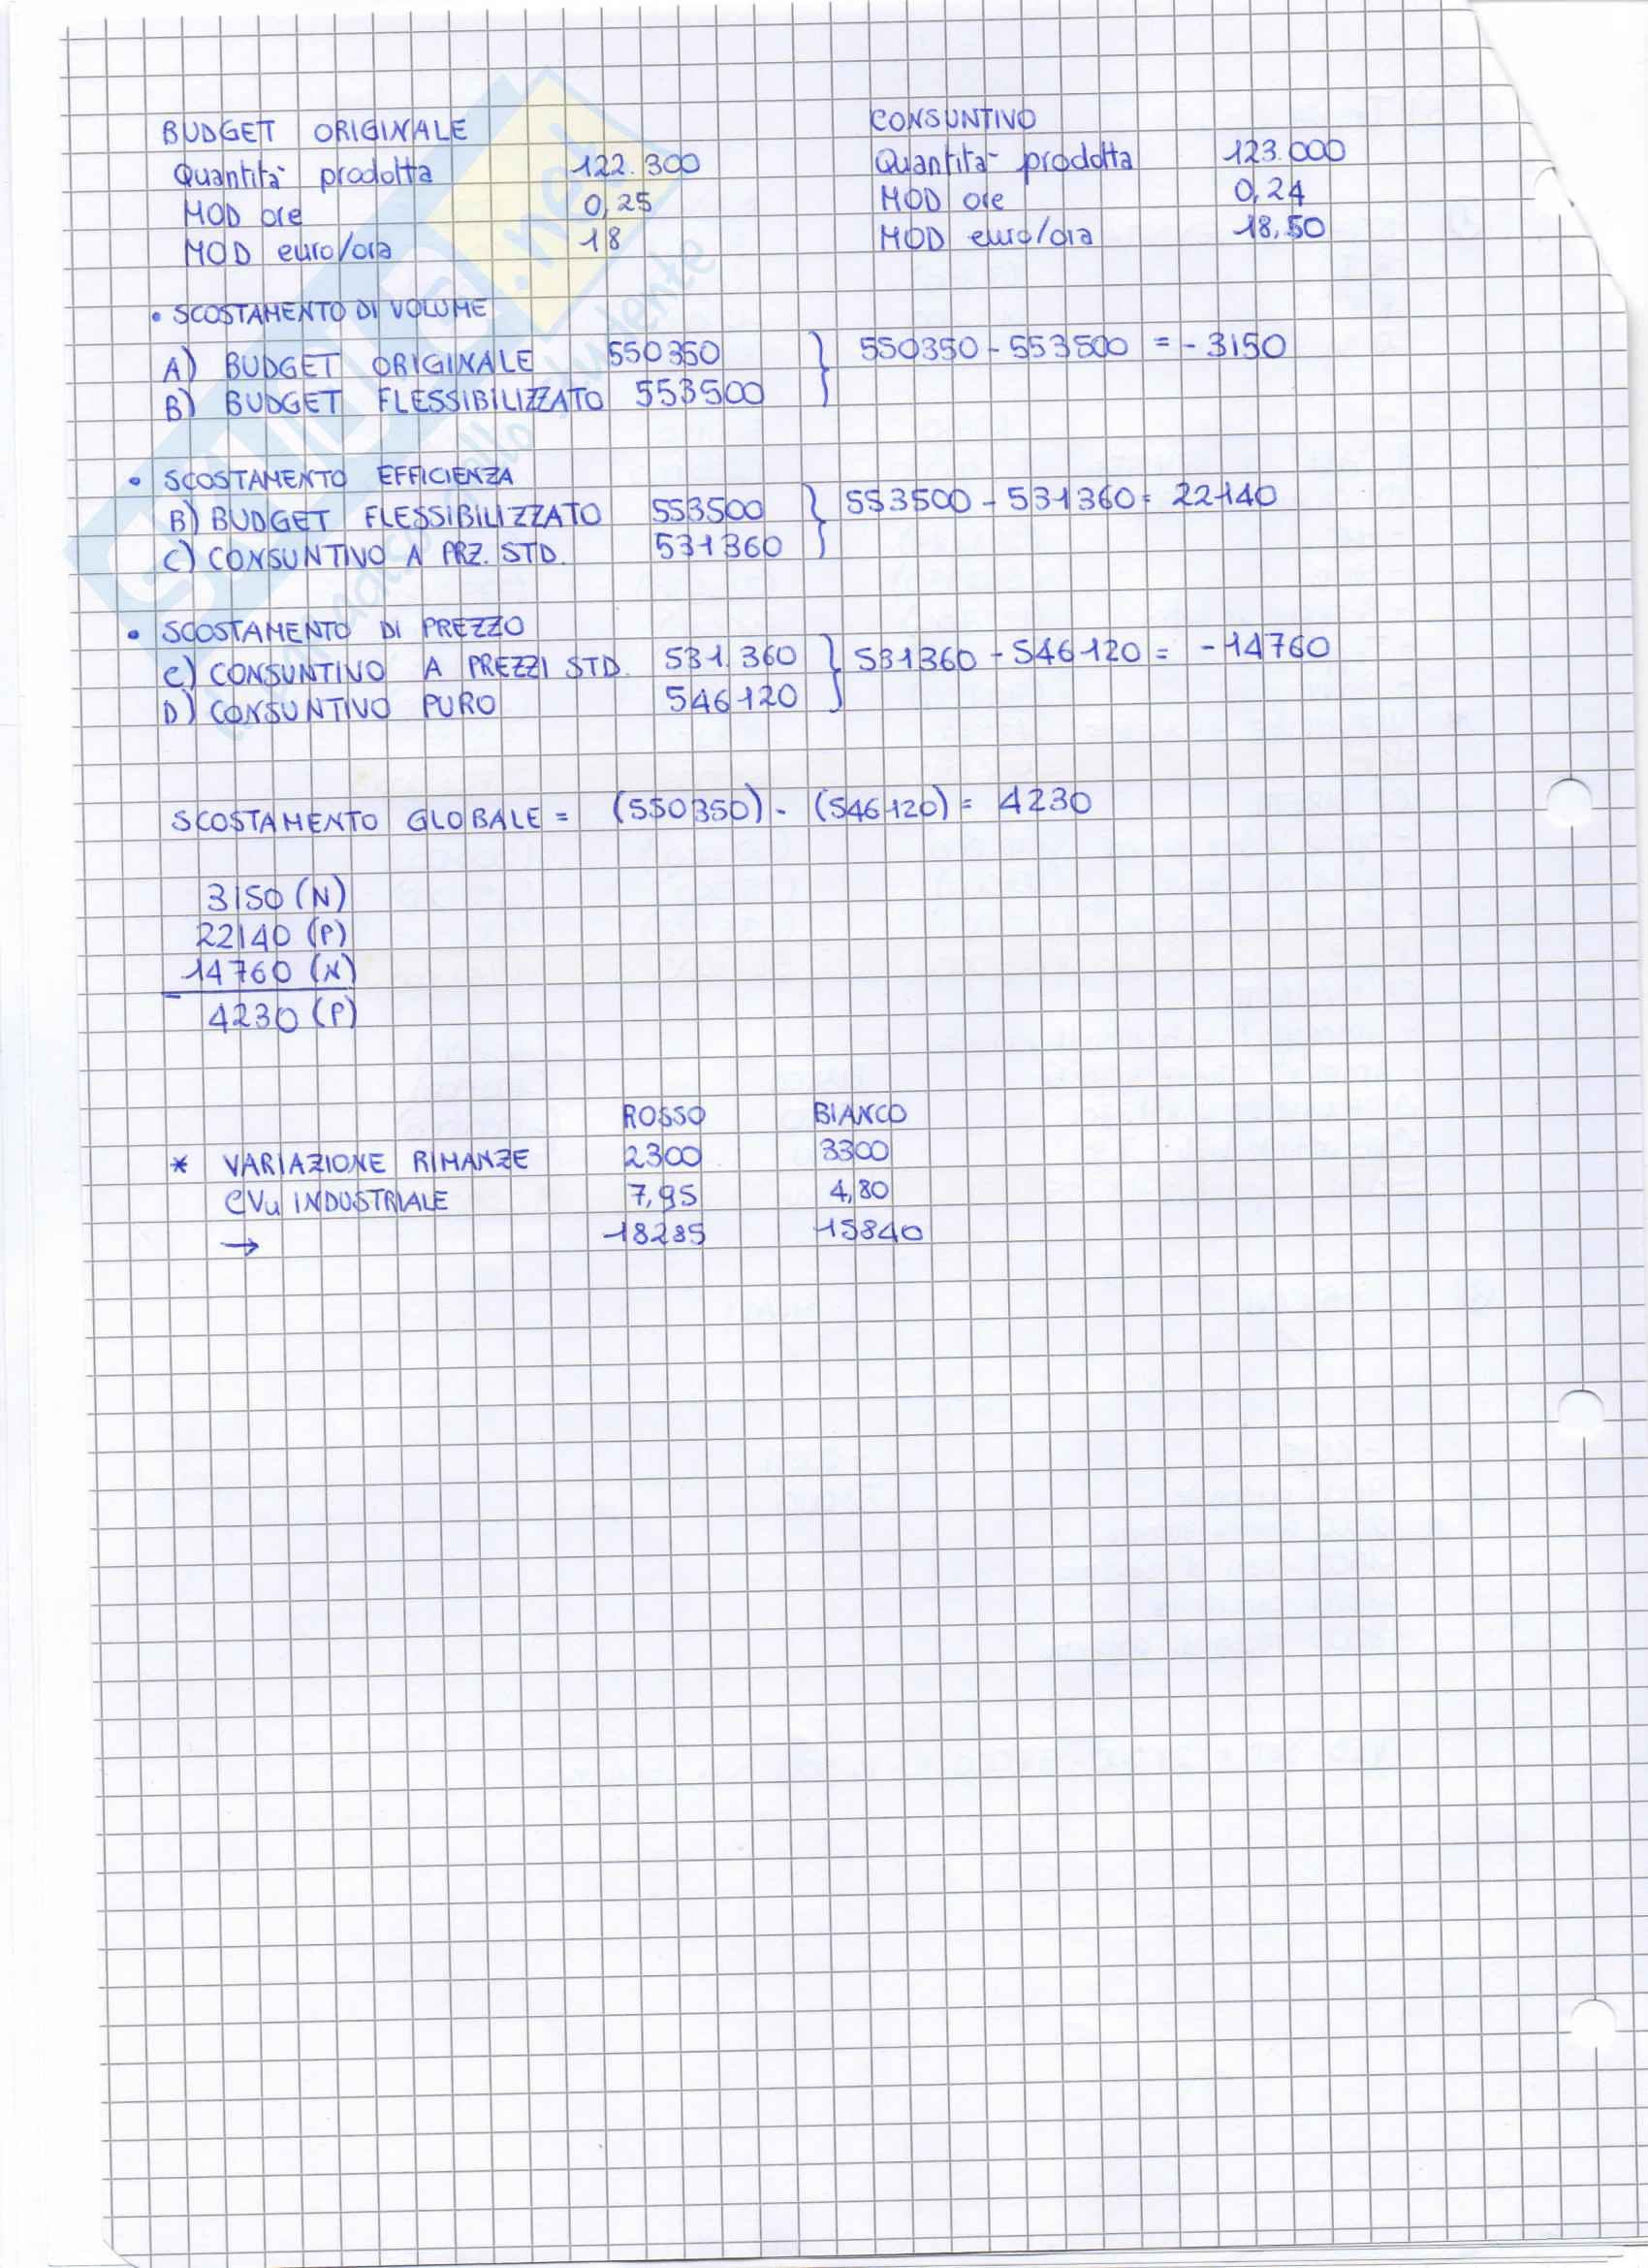 BUDGET ORIGINALE
Quantità prodotta 122.300
MOD ore 0,25
MOD euro/ora 18
CONSUNTIVO
Quantità prodotta 123.000
MOD ore 0,24
MOD euro/ora 18,50
• SCOSTAMENTO DI VOLUME
A) BUDGET ORIGINALE 550350
B) BUDGET FLESSIBILIZZATO 553500
550350 - 553500 = - 3150
• SCOSTAMENTO EFFICIENZA
B) BUDGET FLESSIBILIZZATO 553500
C) CONSUNTIVO A PRZ. STD. 531360
553500 - 531360 = 22140
• SCOSTAMENTO DI PREZZO
C) CONSUNTIVO A PREZZI STD. 531.360
D) CONSUNTIVO PURO 546120
531360 - 546120 = - 14760
SCOSTAMENTO GLOBALE = (550350) - (546120) = 4230
3150 (N)
22140 (P)
14760 (N)
4230 (P)
ROSSO BIANCO
* VARIAZIONE RIMANZE 2300 3300
CVu INDUSTRIALE 7,95 4,80
→ 18285 15840